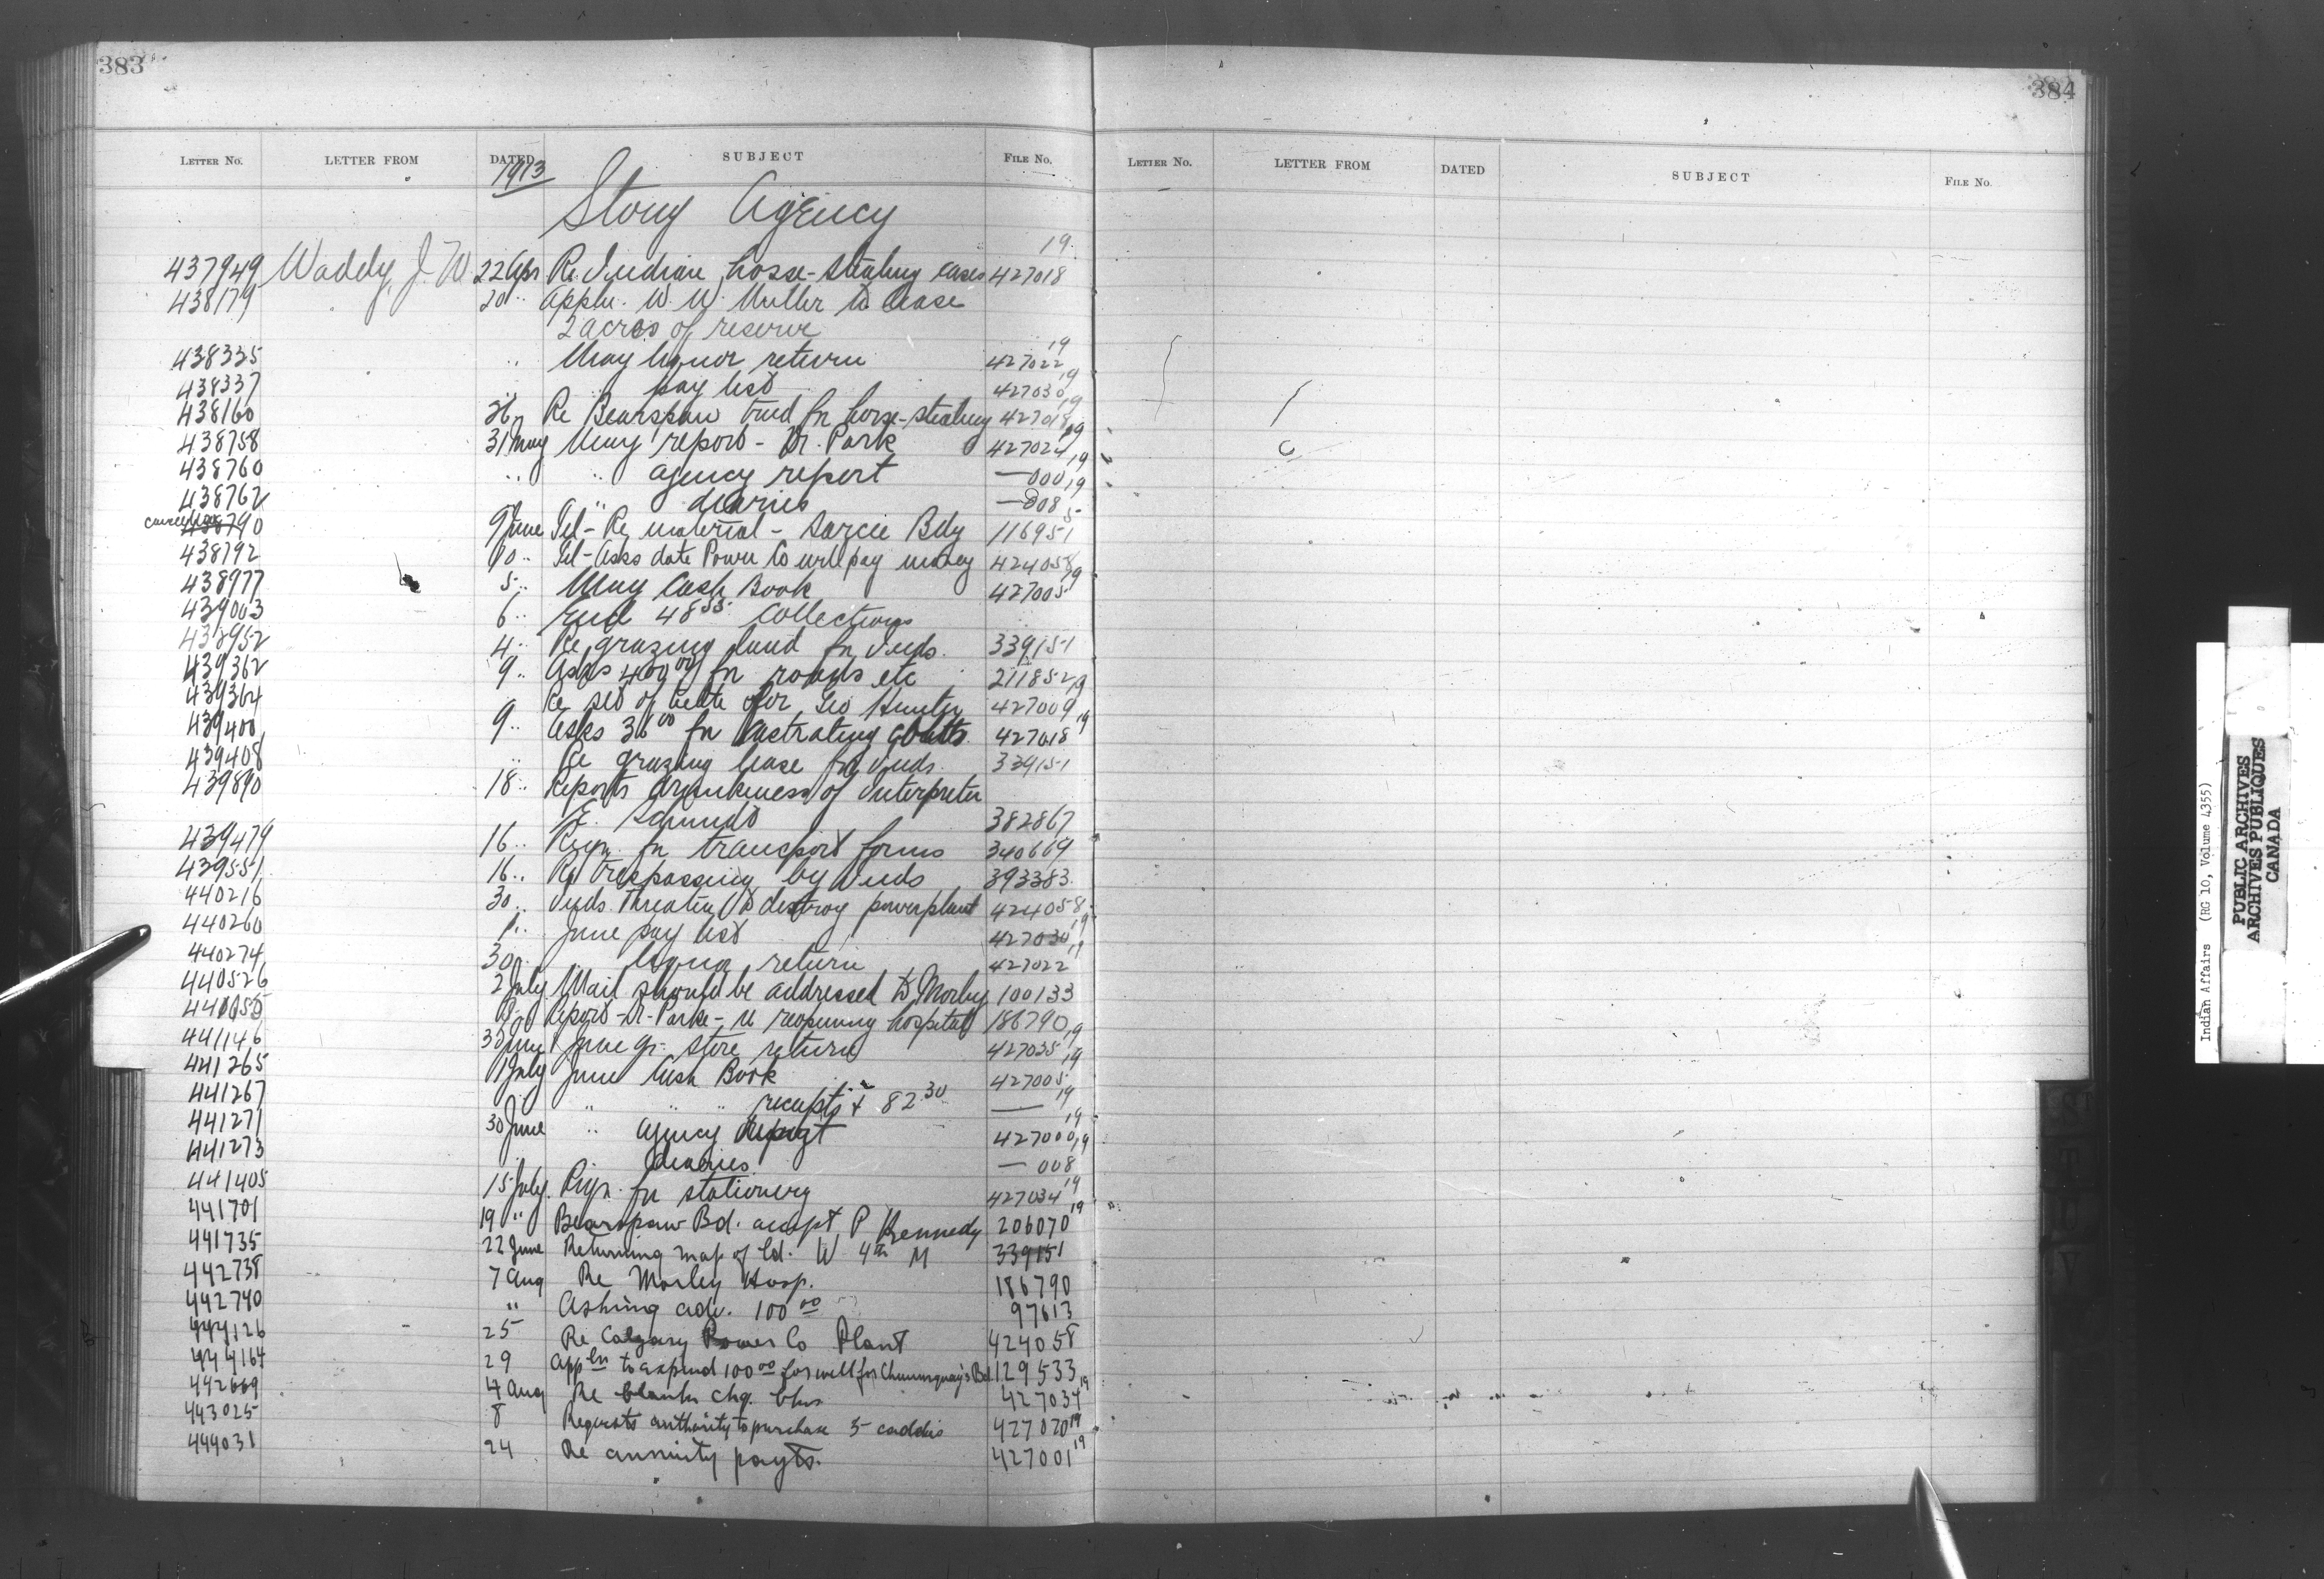 383
384
LETTER NO. LETTER FROM DATED SUBJECT FILE No.
LETTER NO. LETTER FROM DATED SUBJECT FILE No.
1913
Stony Agency
437949 Waddy, J. W 22 Apr Re Indian horse-stealing cases 427018 19
438179 20 " Appln. W. W. Muller to lease
2 acres of reserve
438335 " May liquor return 427022 19
438337 " " pay list 427030 19
438160 26 " Re Bearspaw tried for horse-stealing 427018 19
438758 31 May May report - Dr. Park 427024 19
438760 " " agency report — 000 19
438762 " diaries — 008 19
cancelled 438790 9 June Tel - Re material - Sarcee Bdy 116951 5
438792 10 " Tel - Asks date Power Co will pay money 424058
438977 5 " May Cash Book 427005 19
439003 6 " Encl 48.55 collections
438952 4 " Re grazing land for Inds. 339151
439362 9 " Asks 400 00 for roads etc 211852
439364 Re set of teeth for Geo Hunter 427009 19
439400 9 " Asks 36 00 for castrating colts 427018 19
439408 " Re grazing lease for Inds. 339151
439890 18 " Reports drunkenness of Interpreter
E. 382867
439479 16 " Reqn. for transport forms 340669
439551 16 " Re trespassing by Inds 393383
440216 30 " Inds. threaten to destroy power plant 424058
440260 1 " June pay list 427030 19
440274 30 " " liquor return 427022 19
440526 2 July Mail should be addressed to Morley 100133
Report - Dr. Parke - re reopening hospital 186790
441146 30 June June qr. store return 427035 19
441265 1 July June Cash Book 427005 19
441267 " " " " receipts + 82.30 — 19
441271 30 June " agency report 427000 19
441273 diaries — 008 19
441405 15 July Reqn. for stationery 427034 19
441701 19 " Bearspaw Bd. accept P Kennedy 206070 19
441735 22 June Returning map of ld. W 4th M 339151
442738 7 Aug Re Morley Hosp. 186790
442740 " Asking adv. 100 00 97613
444126 25 Re Calgary Power Co Plant 424058
444164 29 Appln to expend 100 00 for well for Bd 129533
442669 4 Aug Re blank chq. bks 427034 19
443025 8 Requests authority to purchase 5 caddis 427020 19
444031 24 Re annuity payts. 427001 19
Indian Affairs (RG 10, Volume 4355)
PUBLIC ARCHIVES
ARCHIVES PUBLIQUES
CANADA